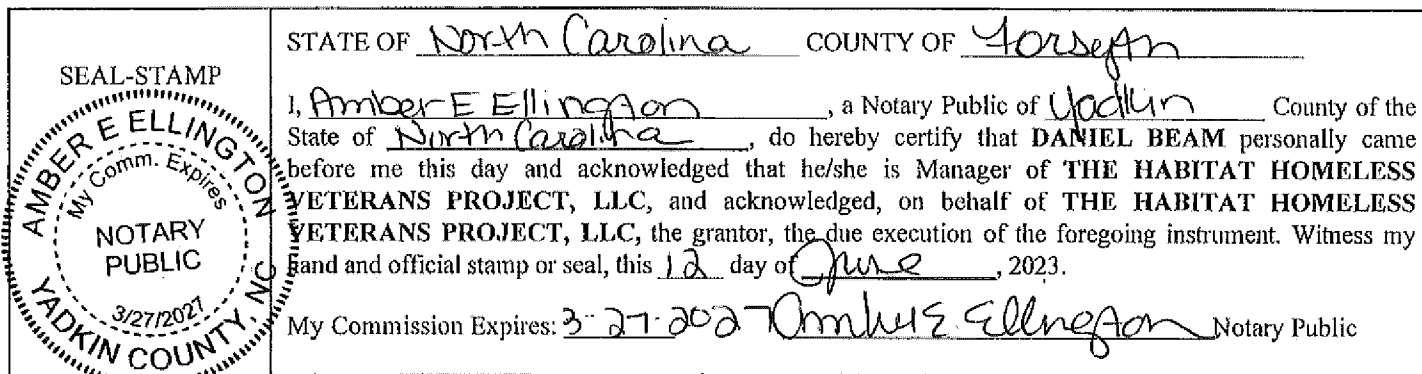 SEAL-STAMP
AMBER E ELLINGTON
My Comm. Expires
NOTARY
PUBLIC
3/27/2027
YADKIN COUNTY, NC
STATE OF North Carolina COUNTY OF Forsyth
I, Amber E Ellington, a Notary Public of Yadkin County of the
State of North Carolina, do hereby certify that DANIEL BEAM personally came
before me this day and acknowledged that he/she is Manager of THE HABITAT HOMELESS
VETERANS PROJECT, LLC, and acknowledged, on behalf of THE HABITAT HOMELESS
VETERANS PROJECT, LLC, the grantor, the due execution of the foregoing instrument. Witness my
hand and official stamp or seal, this 12 day of June, 2023.
My Commission Expires: 3-27-2027 Amber E. Ellington Notary Public